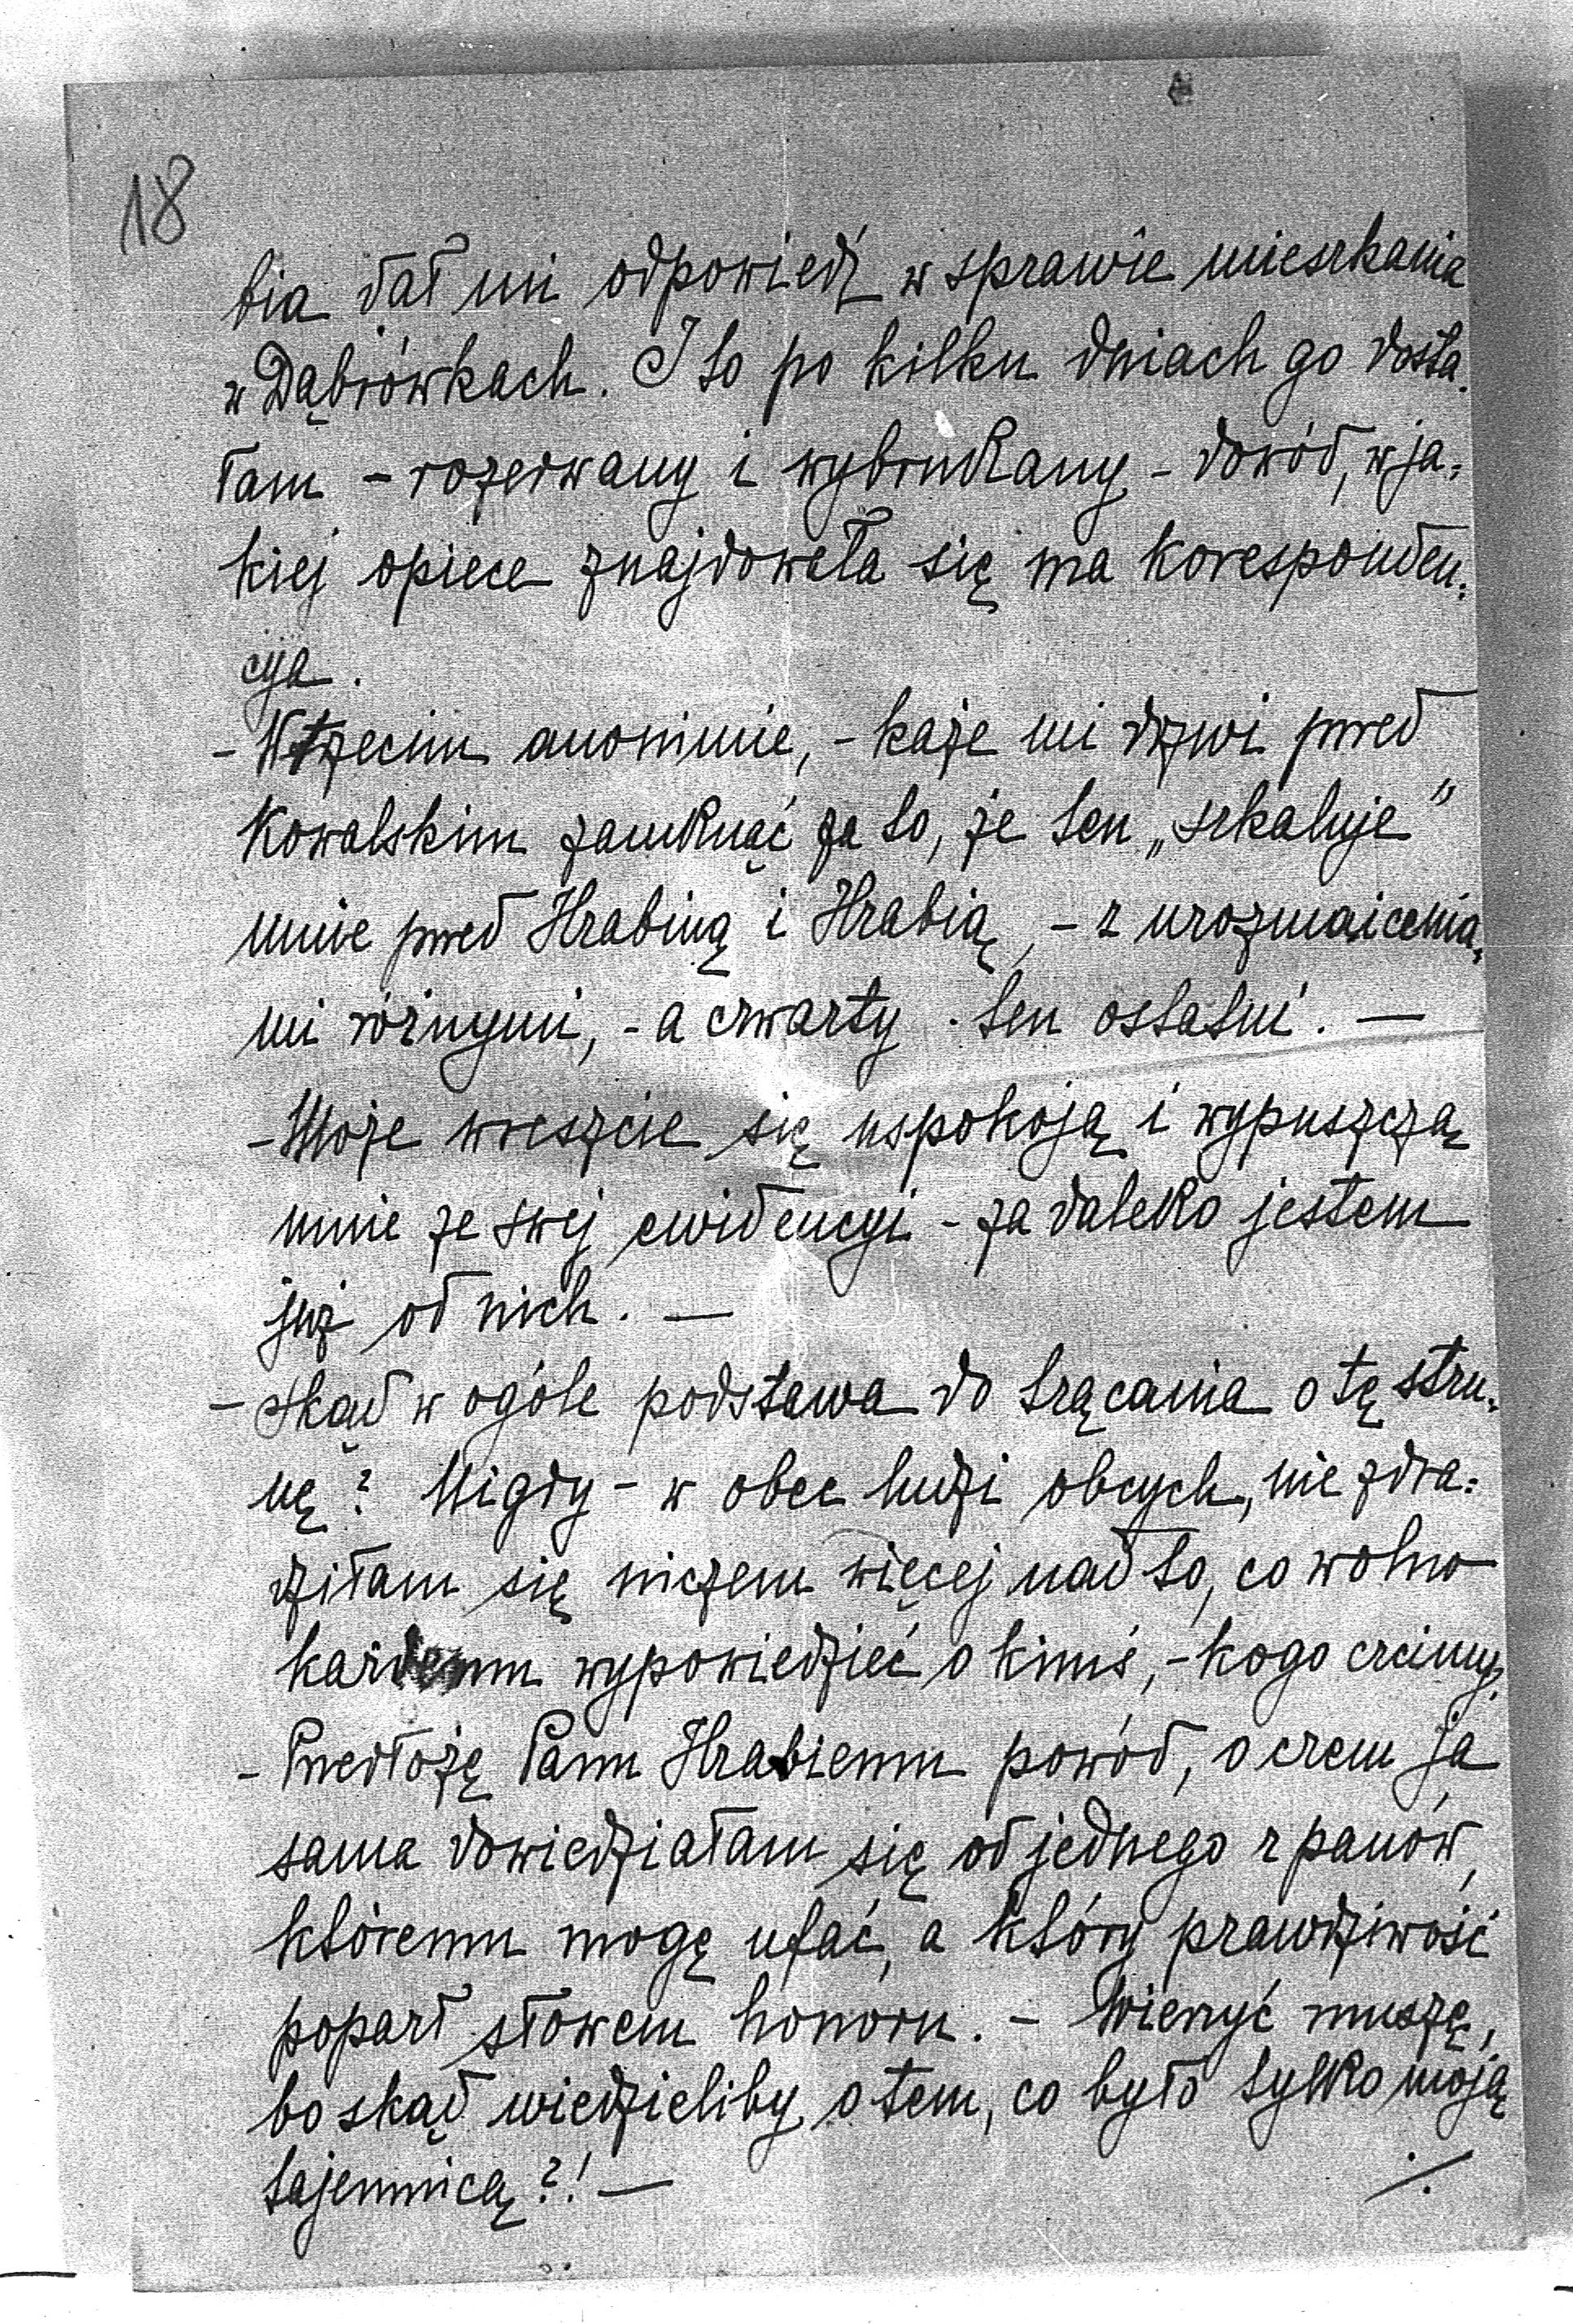 18
bia dał mi odpowiedź w sprawie mieszkania
w Dąbrówkach. I to po kilku dniach go dosta-
łam - rozerwany i wybrudkany - dowód, w ja-
kiej opiece znajdowała się ma koresponden-
cya.
- W trzecim anonimie, - każe mi drzwi przed
Kowalskim zamknąć za to, że ten „szkaluje”
mnie przed Hrabiną i Hrabią, - z urozmaicenia-
mi różnymi, - a czwarty - ten ostatni. —
- Może wreszcie się uspokoją i wypuszczą
mnie ze swej ewidencyi - za daleko jestem
już od nich. —
- Skąd w ogóle podstawa do trącania o tę stru-
nę? Nigdy - w obec ludzi obcych, nie zdra-
dziłam się niczem więcej nad to, co wolno
każdemu wypowiedzieć o kimś, - kogo czcimy.
- Przedłożę Panu Hrabiemu powód, o czem ja
sama dowiedziałam się od jednego z panów,
któremu mogę ufać, a który prawdziwość
poparł słowem honoru. - Wierzyć muszę,
bo skąd wiedzieliby o tem, co było tylko moją
tajemnicą?! —
./.